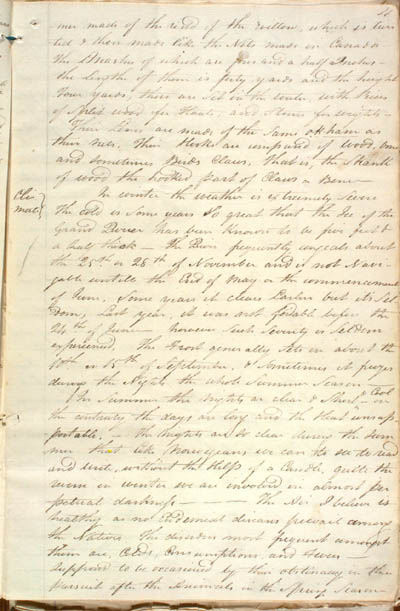 4
mer made of the rind of the willow, which is twis
ted & then made like the Nets made in Canada
The Meashes of which are four and a half Inches
the lengths of them is forty yards and the height
four yards, these are set in the water, with Pieces
of Split wood for floats, and stones for weights —
Their Lines are made of the same as
their nets. Their Hooks are composed of wood, bone
and sometimes Birds Claws, that is, the Shank
of wood the hooked part of Claws or Bone —
Cli-
mate
In winter the weather is extremely Severe
The cold is some years so great that the Ice of the
Grand River has been known to be five feet &
a half thick — the River frequently congeals about
the 25th or 28th of November and is not Navi-
gable untill the End of May or the commencement
of June. Some years it clears Earlier but its Sel-
dom, Last year, it was not before the
24th of June — however such Severity is Seldom
experienced. The Frost generally Sets in about the
10th or 15th of September, & sometimes it freezes
during the Nights the whole Summer Season —
In Summer the Nights are clear & Cool — on
the contrary the days are long and the Heat unsup-
portable, — the Nights are so clear during the Sum
mer that like Norwegians we can see to read
and write, without the Help of a Candle, quite the
in winter we are involved in almost per
petual darkness — The Air I believe is
healthy as no Endemial diseases prevail among
the Natives. The disorders most frequent amongst
them are, Colds, Consumptions, and
Supposed to be occasioned by their obstinacy in their
pursuit after the Animals in the Spring Season —